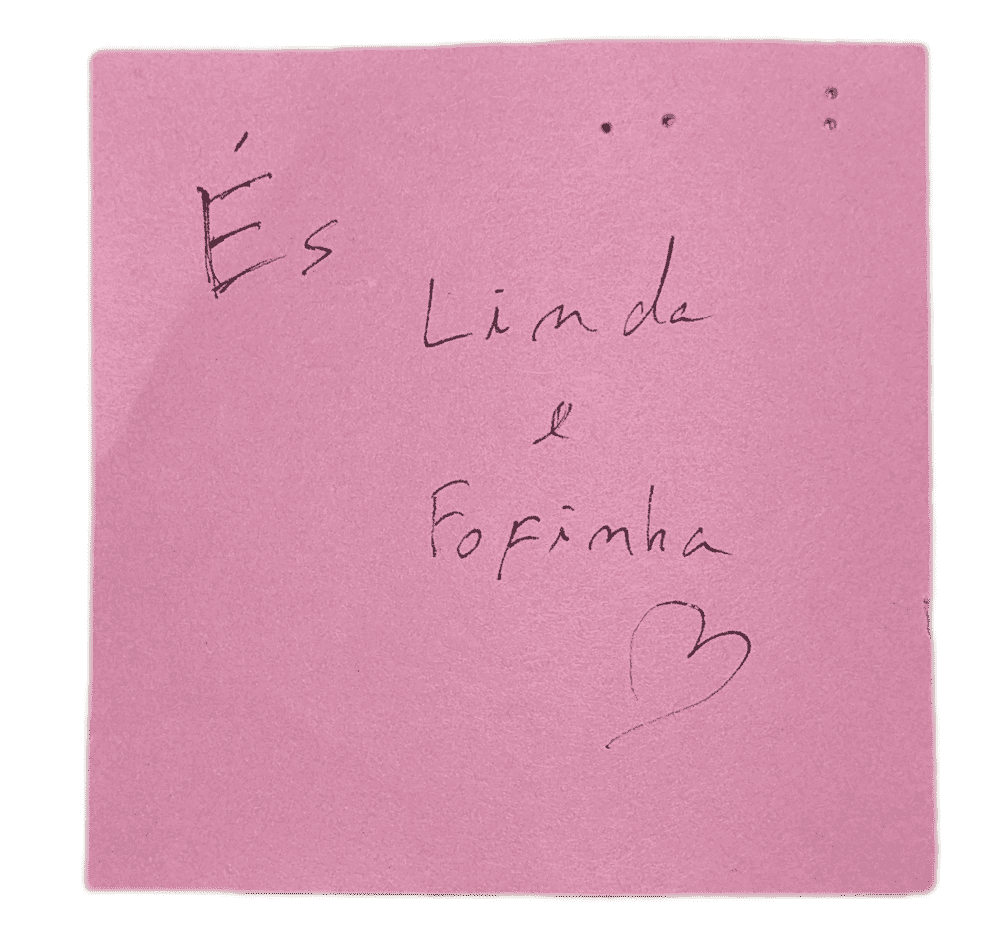 És
Linda
e
Fofinha